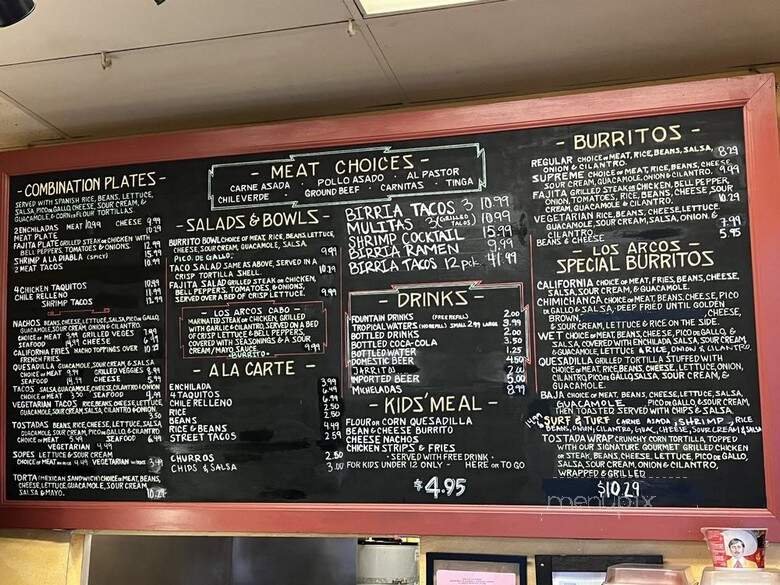 - COMBINATION PLATES -
SERVED WITH SPANISH RICE, BEANS, LETTUCE,
SALSA, PICO de GALLO, CHEESE, SOUR CREAM, &
GUACAMOLE & CORN or FLOUR TORTILLAS.
2 ENCHILADAS MEAT 10.99 CHEESE 9.99
MEAT PLATE 10.29
FAJITA PLATE GRILLED STEAK OR CHICKEN WITH
BELL PEPPERS, TOMATOES & ONIONS. 12.99
SHRIMP A LA DIABLA (SPICY) 15.99
2 MEAT TACOS 10.99
4 CHICKEN TAQUITOS 10.99
CHILE RELLENO
SHRIMP TACOS 12.99
NACHOS BEANS, CHEESE, LETTUCE, SALSA, PICO de GALLO,
GUACAMOLE, SOUR CREAM, ONION & CILANTRO.
MEAT CHEESE
SEAFOOD
CALIFORNIA FRIES NACHO TOPPINGS OVER
FRENCH FRIES.
QUESADILLA GUACAMOLE, SOUR CREAM & SALSA
CHOICE OF MEAT 9.99 GRILLED VEGGIES 8.99
SEAFOOD CHEESE
TACOS SALSA, GUACAMOLE, CHEESE, CILANTRO & ONION
CHOICE OF MEAT 3.50 SEAFOOD
VEGETARIAN TACOS RICE, BEANS, CHEESE, LETTUCE,
GUACAMOLE, SOUR CREAM, SALSA, CILANTRO & ONION.
3.50
TOSTADAS BEANS, RICE, CHEESE, LETTUCE, SALSA,
GUACAMOLE, SOUR CREAM, CILANTRO & PICO de GALLO.
CHOICE OF MEAT 5.49 SEAFOOD 6.49
VEGETARIAN 4.49
SOPES LETTUCE & SOUR CREAM
CHOICE OF MEAT 4.49 VEGETARIAN
TORTA (MEXICAN SANDWICH) CHOICE OF MEAT, BEANS,
CHEESE, LETTUCE, GUACAMOLE, SOUR CREAM,
SALSA & MAYO. 10.29
- MEAT CHOICES -
CARNE ASADA · POLLO ASADO · AL PASTOR
CHILE VERDE · GROUND BEEF · CARNITAS · TINGA
- SALADS & BOWLS -
BURRITO BOWL CHOICE OF MEAT, RICE, BEANS, LETTUCE,
CHEESE, SOUR CREAM, GUACAMOLE, SALSA,
PICO de GALLO. 9.99
TACO SALAD SAME AS ABOVE, SERVED IN A
CRISP TORTILLA SHELL. 10.29
FAJITA SALAD GRILLED STEAK OR CHICKEN,
BELL PEPPERS, TOMATOES, & ONIONS,
SERVED OVER A BED OF CRISP LETTUCE. 9.99
LOS ARCOS CABO -
MARINATED STEAK OR CHICKEN, GRILLED
WITH GARLIC & CILANTRO, SERVED ON A BED
OF CRISP LETTUCE & BELL PEPPERS,
COVERED WITH SEASONINGS & A SOUR
CREAM / MAYO SAUCE 9.99
BURRITO.
- A LA CARTE -
ENCHILADA 3.99
4 TAQUITOS 4.99
CHILE RELLENO 6.99
RICE 2.50
BEANS 2.50
RICE & BEANS 4.49
STREET TACOS 2.59
CHURROS 2.50
CHIPS & SALSA 3.00
BIRRIA TACOS 3 10.99
MULITAS 2 (GRILLED TACOS) 10.99
SHRIMP COCKTAIL 15.99
BIRRIA RAMEN 9.99
BIRRIA TACOS 12 pck. 41.99
- DRINKS -
FOUNTAIN DRINKS (FREE REFILL) 2.00
TROPICAL WATERS (NO REFILL) SMALL 2.99 LARGE 3.99
BOTTLED DRINKS 2.00
BOTTLED COCA-COLA 3.50
BOTTLED WATER 1.25
DOMESTIC BEER 4.50
JARRITOS 2.00
IMPORTED BEER 5.00
MICHELADAS 8.99
- KIDS' MEAL -
FLOUR OR CORN QUESADILLA
BEAN & CHEESE BURRITO
CHEESE NACHOS
CHICKEN STRIPS & FRIES
- SERVED WITH FREE DRINK -
FOR KIDS UNDER 12 ONLY - HERE OR TO GO
$4.95
- BURRITOS -
REGULAR CHOICE OF MEAT, RICE, BEANS, SALSA,
ONION & CILANTRO. 8.29
SUPREME CHOICE OF MEAT, RICE, BEANS, CHEESE,
SOUR CREAM, GUACAMOLE, ONION & CILANTRO. 9.99
FAJITA GRILLED STEAK OR CHICKEN, BELL PEPPER,
ONION, TOMATOES, RICE, BEANS, CHEESE, SOUR
CREAM, GUACAMOLE & CILANTRO. 10.29
VEGETARIAN RICE, BEANS, CHEESE, LETTUCE,
GUACAMOLE, SOUR CREAM, SALSA, ONION, &
CILANTRO. 7.99
BEANS & CHEESE 5.95
- LOS ARCOS -
SPECIAL BURRITOS
CALIFORNIA CHOICE OF MEAT, FRIES, BEANS, CHEESE,
SALSA, SOUR CREAM, & GUACAMOLE.
CHIMICHANGA CHOICE OF MEAT, BEANS, CHEESE, PICO
de GALLO & SALSA, DEEP FRIED UNTIL GOLDEN
BROWN, CHEESE,
& SOUR CREAM, LETTUCE & RICE ON THE SIDE.
WET CHOICE OF MEAT, BEANS, CHEESE, PICO de GALLO, &
SALSA, COVERED WITH ENCHILADA SALSA, SOUR CREAM
& GUACAMOLE, LETTUCE & RICE, ONION & CILANTRO
QUESADILLA GRILLED TORTILLA STUFFED WITH
CHOICE OF MEAT, RICE, BEANS, CHEESE, LETTUCE, ONION,
CILANTRO, PICO de GALLO, SALSA, SOUR CREAM, &
GUACAMOLE.
BAJA CHOICE OF MEAT, BEANS, CHEESE, LETTUCE, SALSA,
GUACAMOLE PICO de GALLO & SOUR CREAM,
THEN TOASTED SERVED WITH CHIPS & SALSA
14.99 SURF & TURF CARNE ASADA & SHRIMP, RICE
BEANS, ONION, CILANTRO, GUAC, CHEESE, SOUR CREAM & SALSA
TOSTADA WRAP CRUNCHY CORN TORTILLA, TOPPED
WITH OUR SIGNATURE GOURMET GRILLED CHICKEN
OR STEAK, BEANS, CHEESE, LETTUCE, PICO de GALLO,
SALSA, SOUR CREAM, ONION & CILANTRO,
WRAPPED & GRILLED
$10.29
menupix